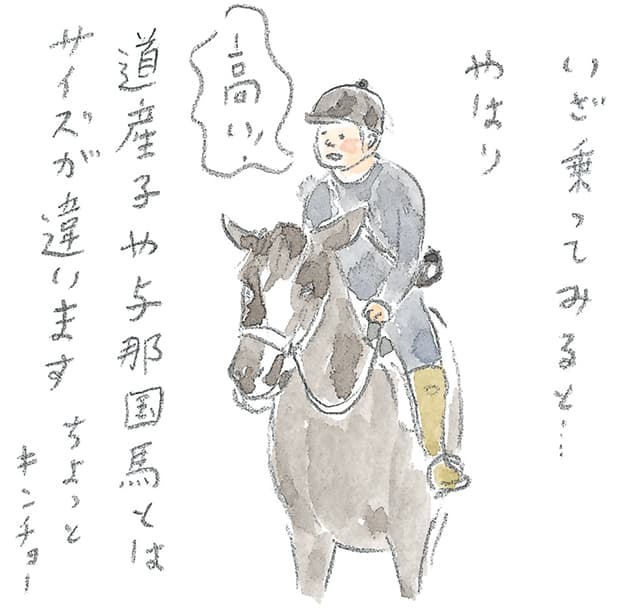 いざ乗ってみると…
やはり
高いっ!
道産子や与那国馬とは
サイズが違います
ちょっと
キンチョー